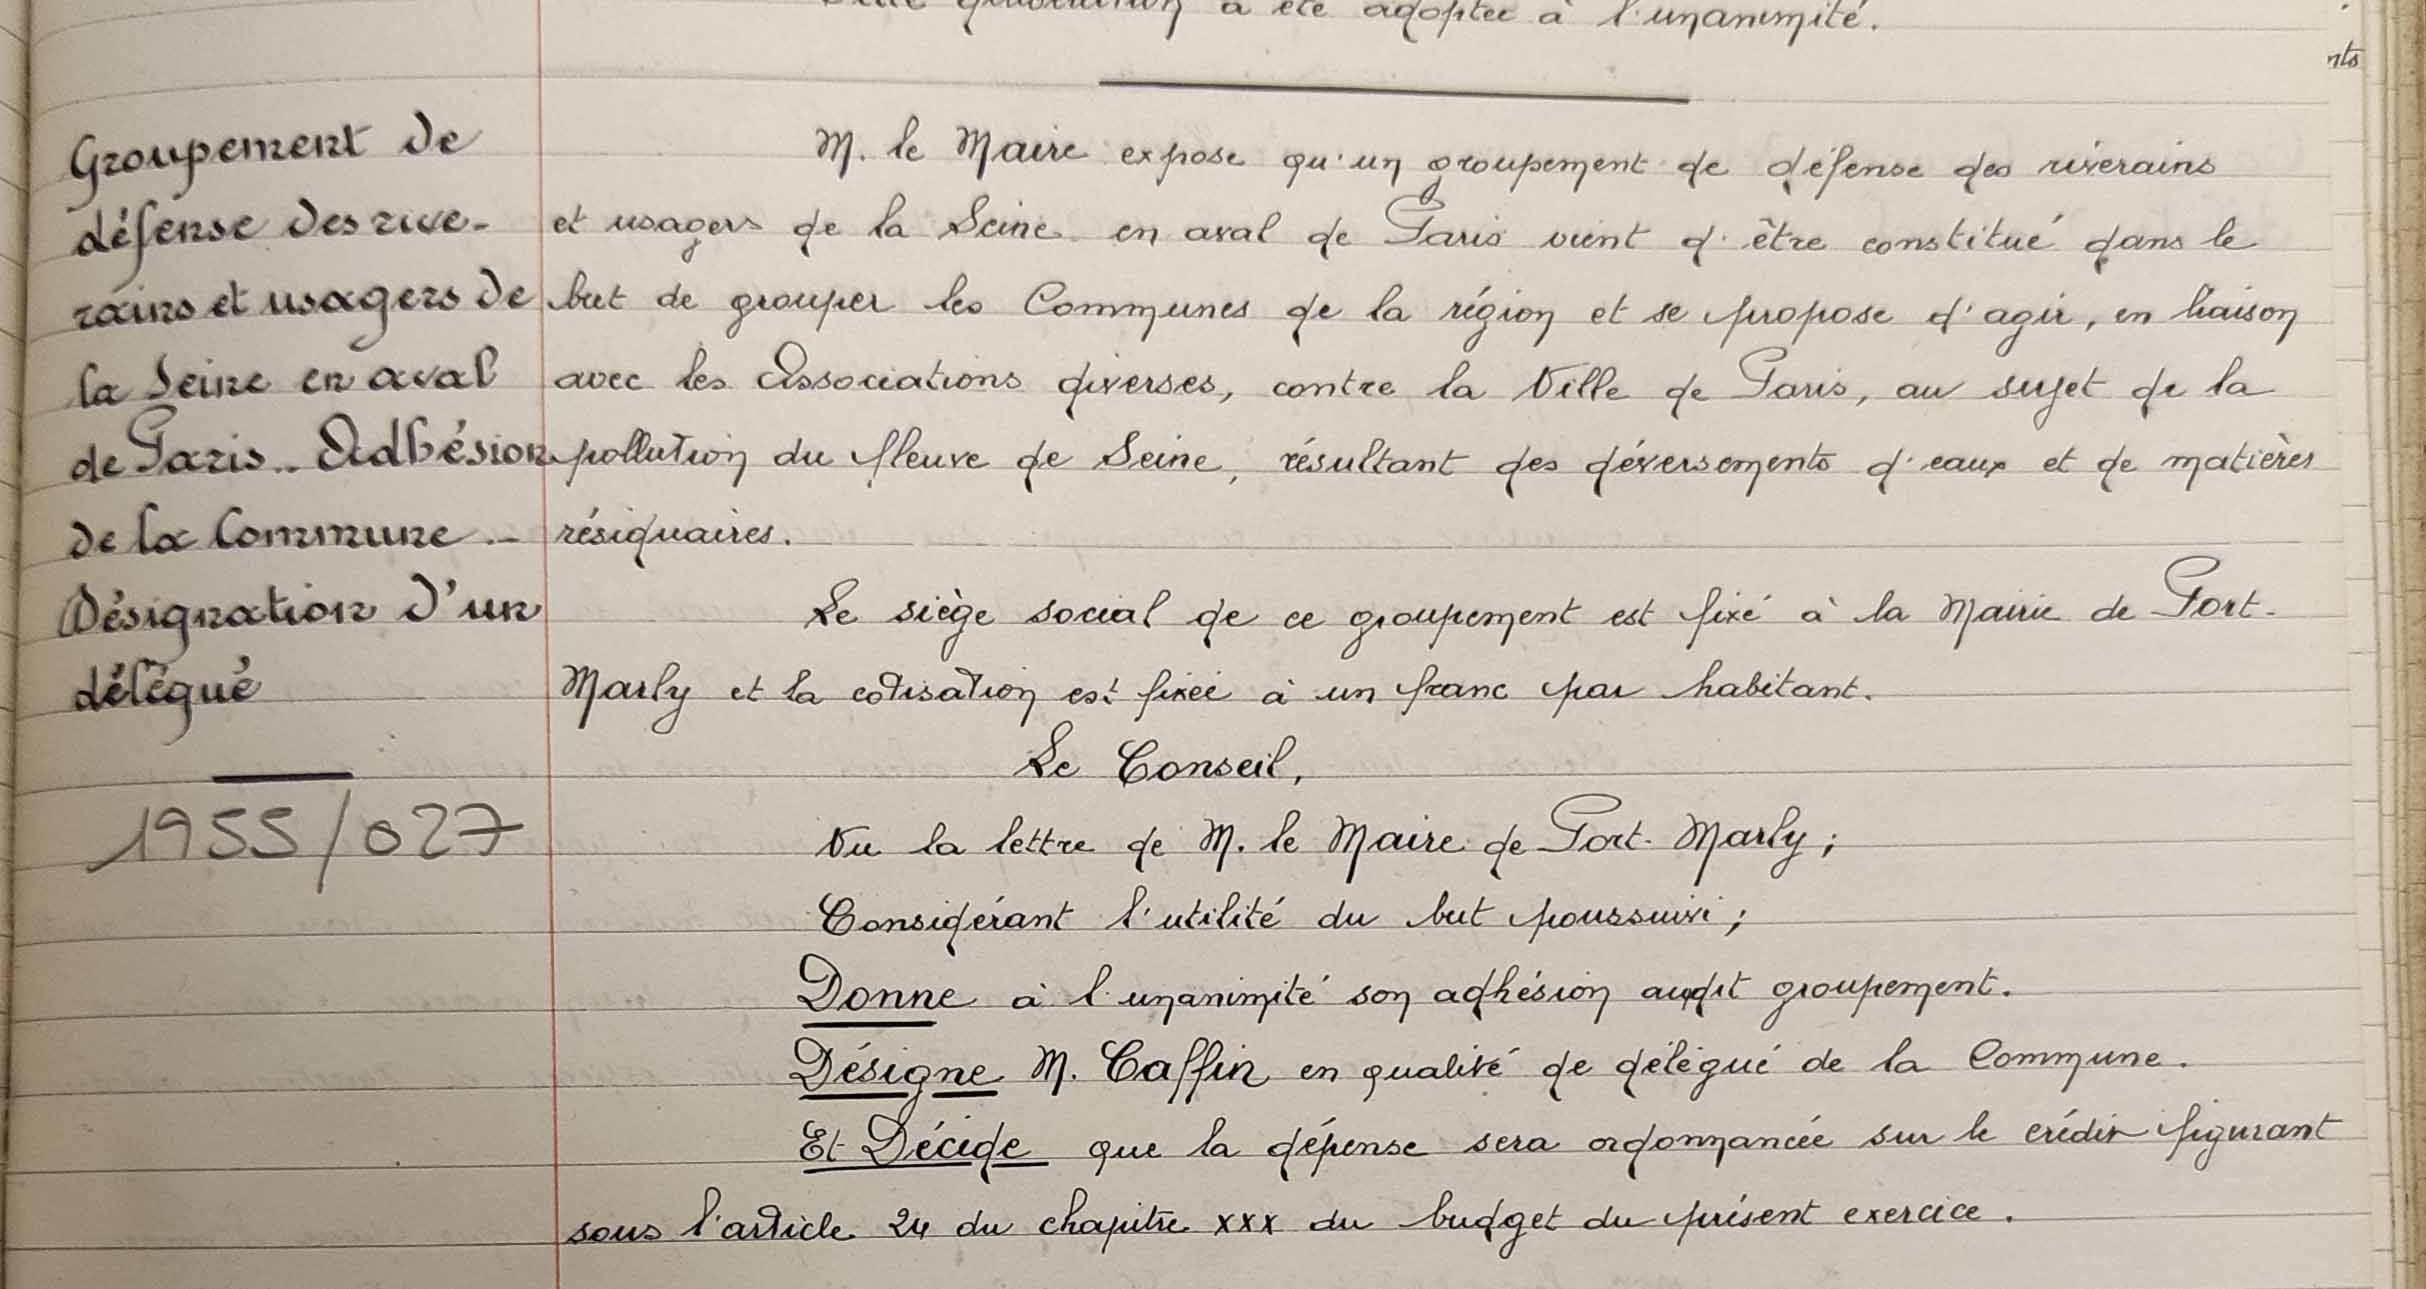 a été adoptée à l'unanimité.
nts
Groupement de
défense des rive-
rains et usagers de
la Seine en aval
de Paris.. Adhésion
de la Commune..
Désignation d'un
délégué
1955/027
M. le Maire expose qu'un groupement de défense des riverains
et usagers de la Seine en aval de Paris vient d'être constitué dans le
but de grouper les Communes de la région et se propose d'agir, en liaison
avec les Associations diverses, contre la Ville de Paris, au sujet de la
pollution du fleuve de Seine, résultant des déversements d'eaux et de matières
résiduaires.
Le siège social de ce groupement est fixé à la Mairie de Port-
Marly et la cotisation est fixée à un franc par habitant.
Le Conseil,
Vu la lettre de M. le Maire de Port-Marly;
Considérant l'utilité du but poussuivi;
Donne à l'unanimité son adhésion audit groupement.
Désigne M. Caffin en qualité de délégué de la Commune.
Et Décide que la dépense sera ordonnancée sur le crédit figurant
sous l'article 24 du chapitre xxx du budget du présent exercice.